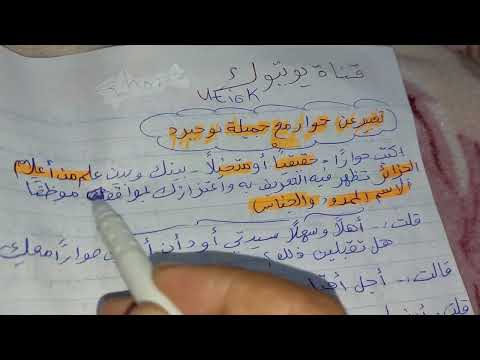 قناة يوتيوب
تعبير عن حوار مع جميلة بوحيرد
اكتب حوارا - حقيقيا أو متخيلا - بينك وبين علم من أعلام
الجزائر تظهر فيه التعريف به واعتزازك بمواقفه موظفا
الاسم الممدود والجناس
قلت: - أهلا وسهلا سيدتي أود أن حوارا معك
هل تقبلين ذلك؟
قالت: - أجل
قلت